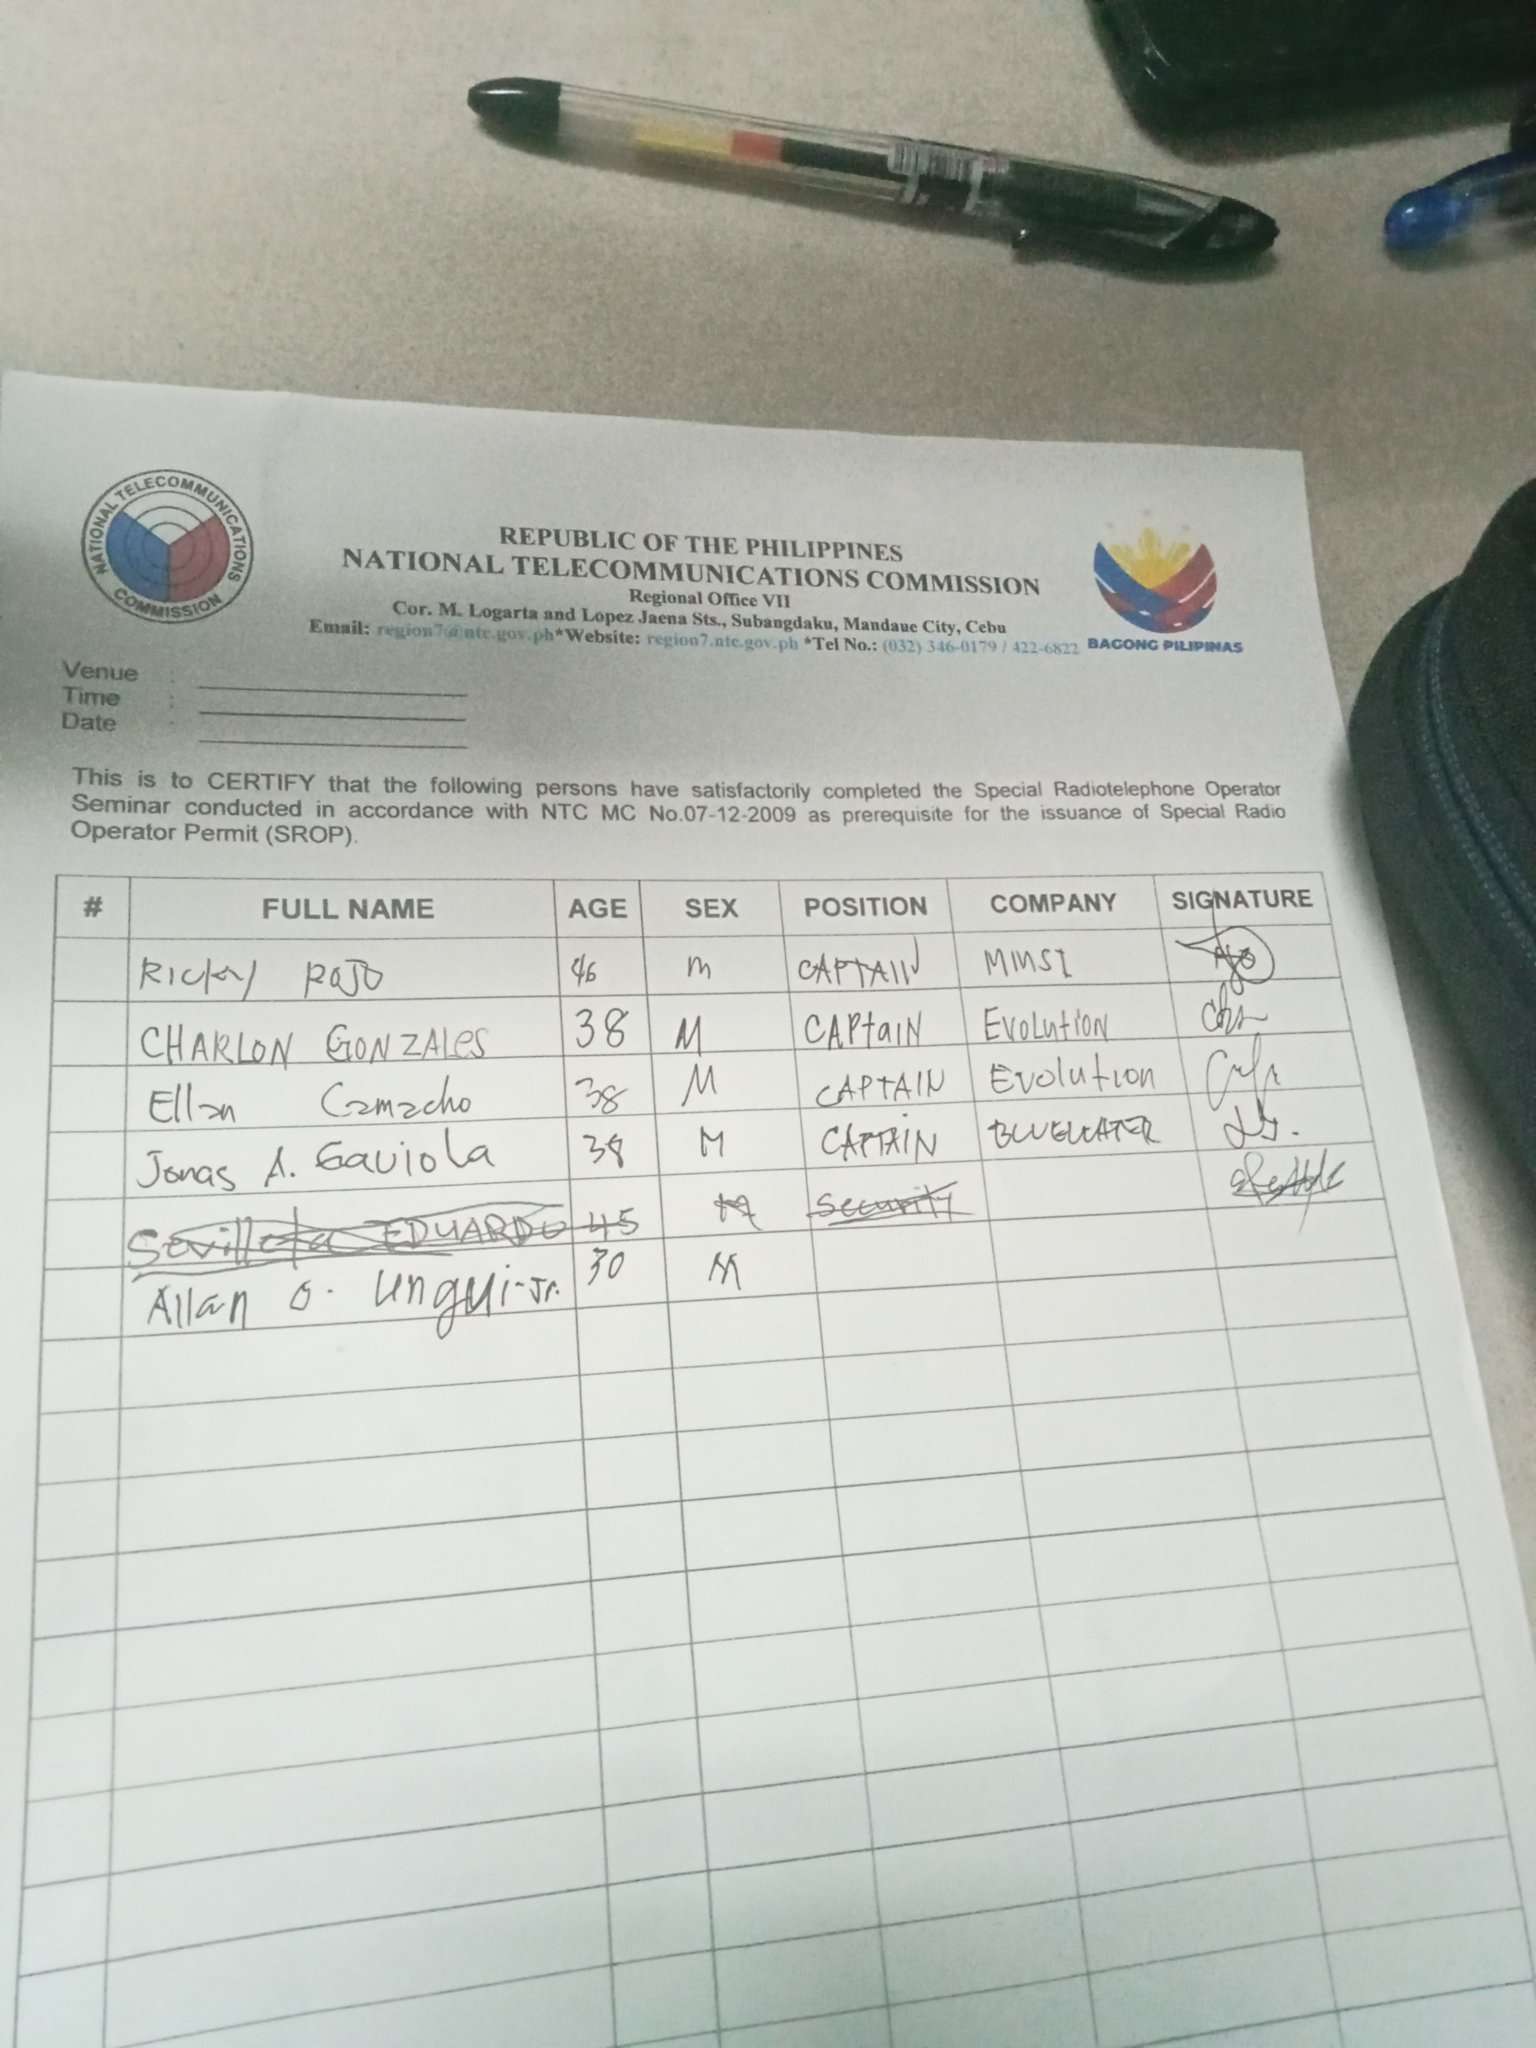 NATIONAL TELECOMMUNICATIONS COMMISSION
REPUBLIC OF THE PHILIPPINES
NATIONAL TELECOMMUNICATIONS COMMISSION
Regional Office VII
Cor. M. Logarta and Lopez Jaena Sts., Subangdaku, Mandaue City, Cebu
Email: region7@ntc.gov.ph*Website: region7.ntc.gov.ph *Tel No.: (032) 346-0179 / 422-6822
BAGONG PILIPINAS
Venue :
Time :
Date :
This is to CERTIFY that the following persons have satisfactorily completed the Special Radiotelephone Operator
Seminar conducted in accordance with NTC MC No.07-12-2009 as prerequisite for the issuance of Special Radio
Operator Permit (SROP).
# FULL NAME AGE SEX POSITION COMPANY SIGNATURE
Ricky ROJO 46 M CAPTAIN MMSI
CHARLON GONZALES 38 M CAPtAIN EvoLutioN
Ellan Camacho 38 M CAPTAIN Evolution
Jonas A. Gaviola 38 M CAPTAIN BLUEWATER
EDUARDO 45 M Security
Allan O. Ungui-Jr. 30 M